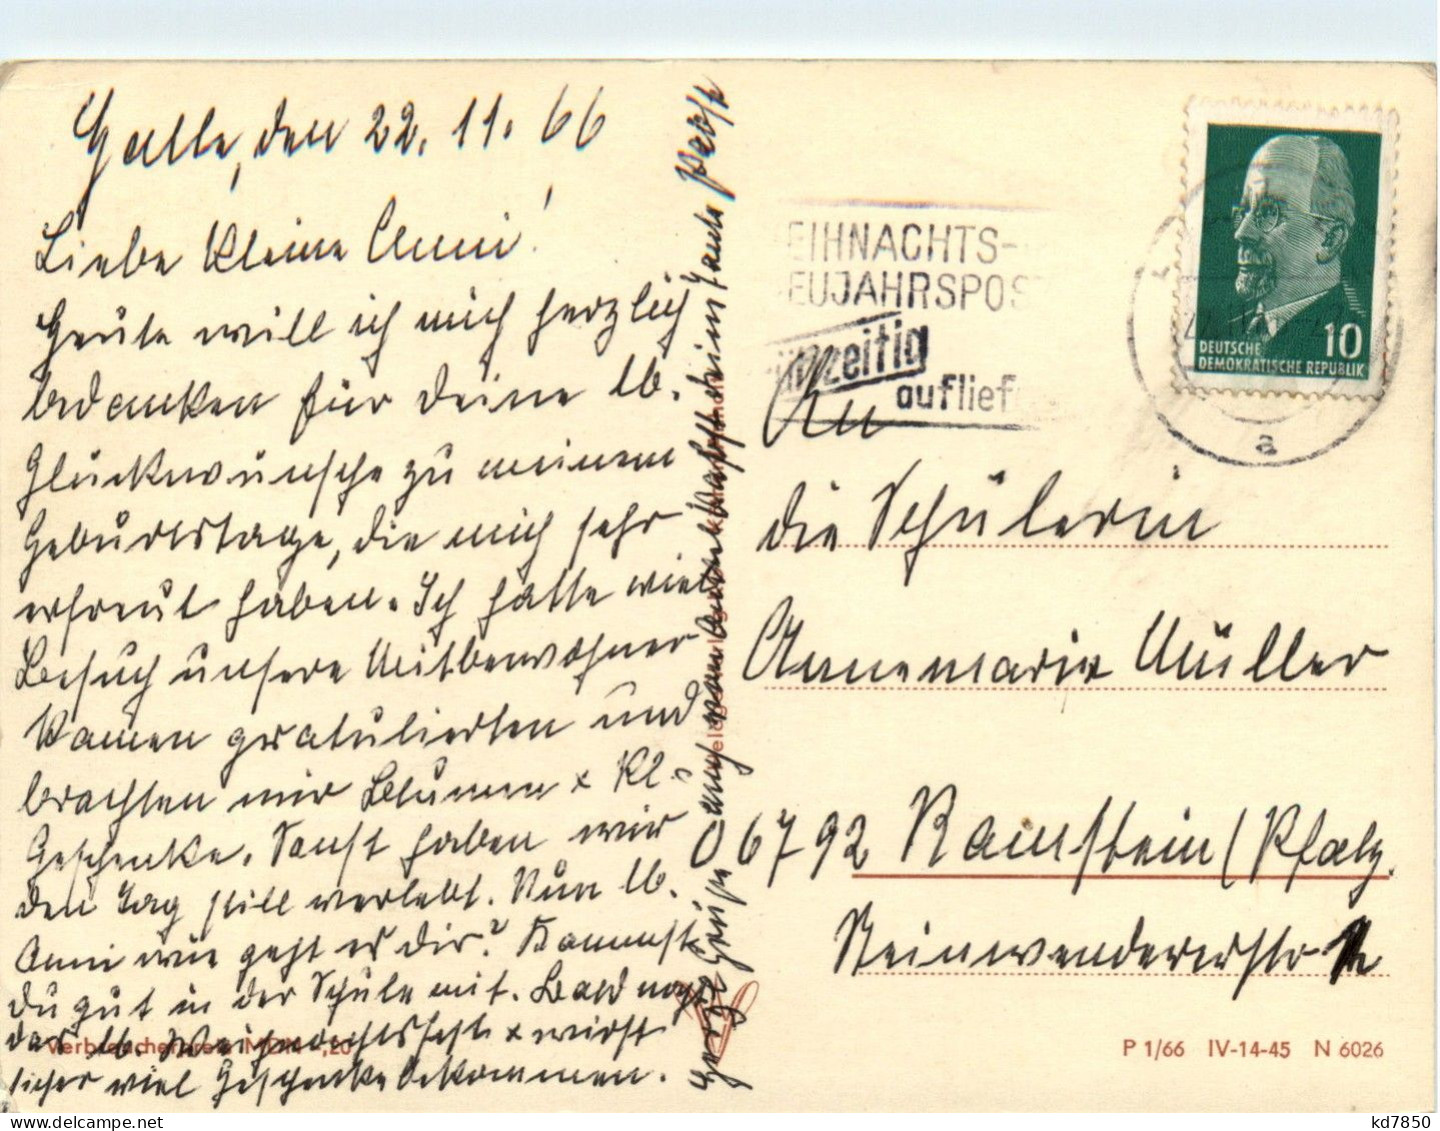 Halle, den 22. 11. 66
Liebe kleine Anni!
Heute will ich mich herzlich
bedanken für deine lb.
Glückwünsche zu meinem
Geburtstage, die mich sehr
erfreut haben. Ich hatte viel
Besuch unsere Mitbewohner
kamen gratulierten und
brachten mir Blumen & kl.
Geschenke. Sonst haben wir
den Tag still verlebt. Nun lb.
Anni wie geht es dir? Kommst
du gut in der Schule mit. Bald naht
das lb. Weihnachtsfest & wirst
sicher viel Geschenke bekommen.
Herzl. Grüße auch von Onkel
dein Tante
EIHNACHTS-
EUJAHRSPOS
zeitig
auflief
10
DEUTSCHE
DEMOKRATISCHE REPUBLIK
a
An
die Schülerin
Annemarie Müller
06792 Ramstein/Pfalz.
Steinwendererstr
Verbraucherpreis MDN -,20
P 1/66 IV-14-45 N 6026
kd7850